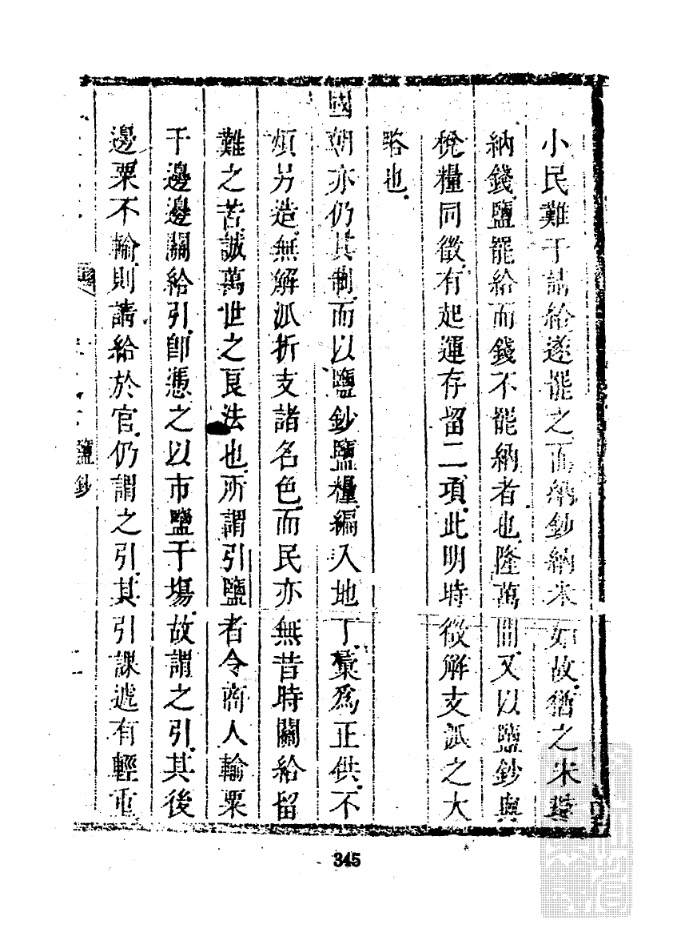 小民難于請給遂罷之而納鈔納米如故猶之宋時
納錢鹽罷給而錢不罷納者也隆萬間又以鹽鈔與
稅糧同徵有起運存留二項此明時徵解支派之大
略也
國朝亦仍其制而以鹽鈔鹽糧編入地丁彙爲正供不
煩另造無解派折支諸名色而民亦無昔時關給留
難之苦誠萬世之良法也所謂引鹽者令商人輸粟
于邊邊關給引卽憑之以市鹽于場故謂之引其後
邊粟不輸則請給於官仍謂之引其引課遞有輕重
鹽鈔
345